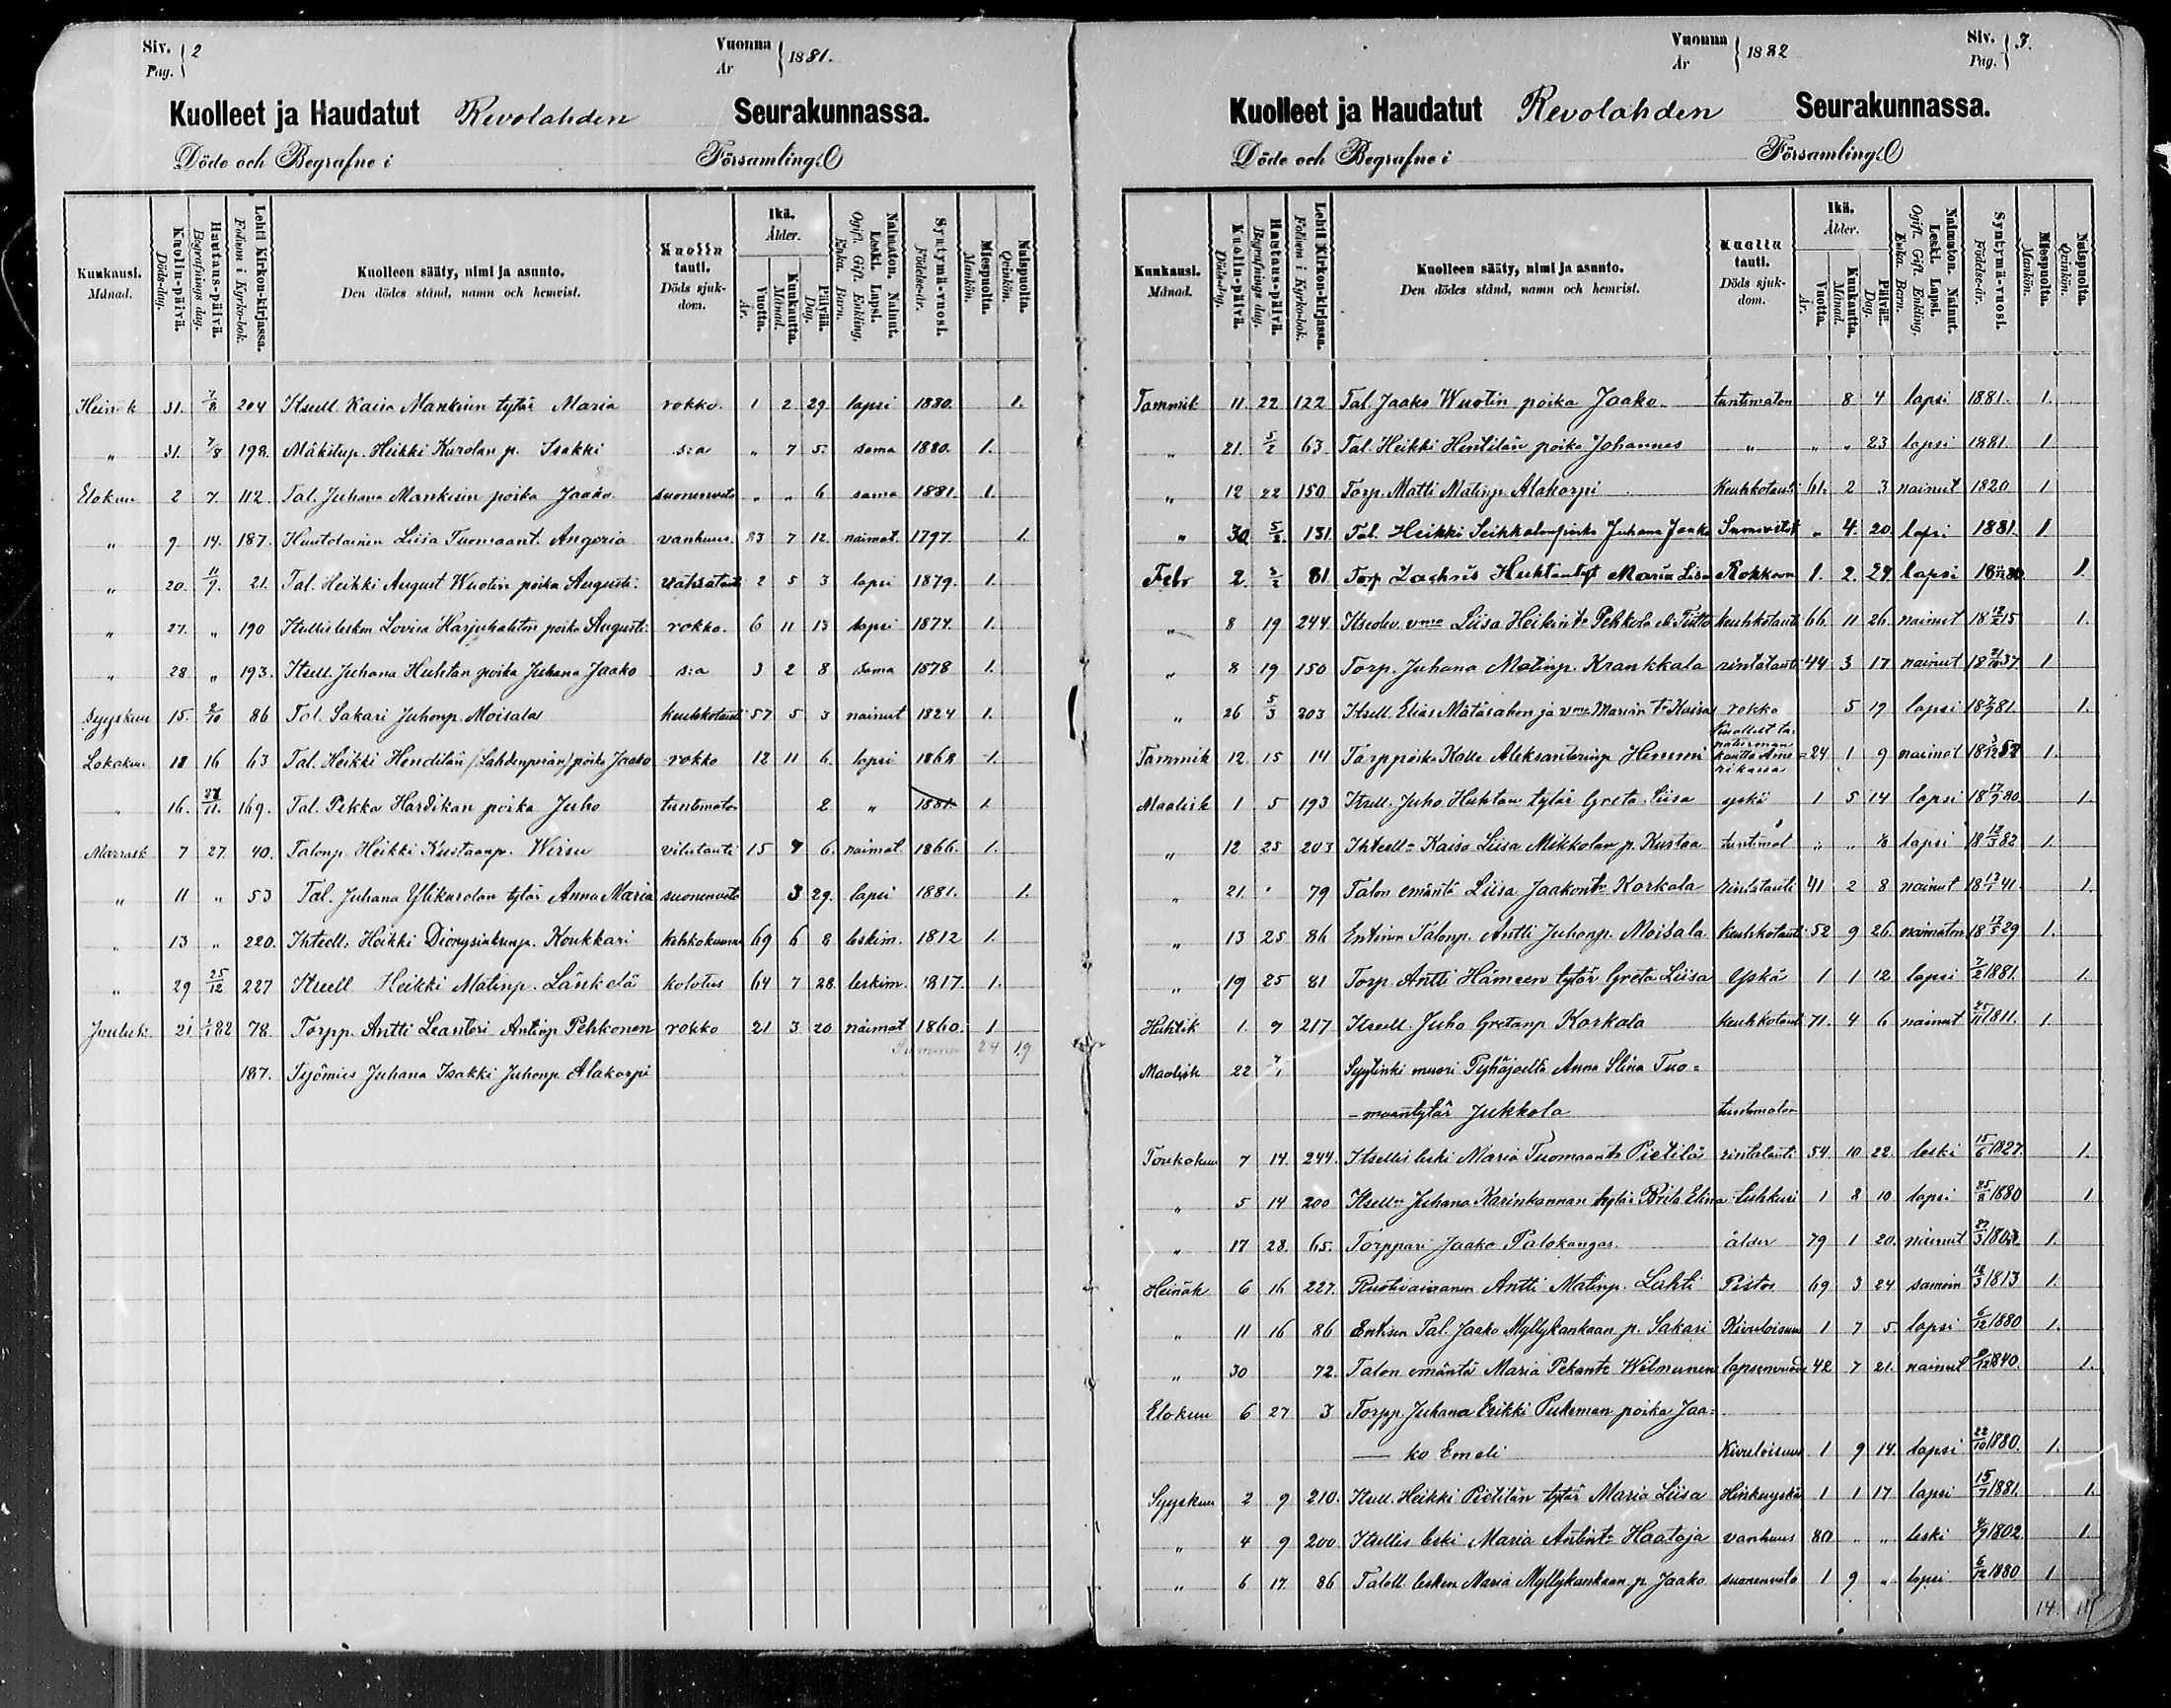 Siv. Pag. 2 Vuonna År 1881.
Kuolleet ja Haudatut Revolahden Seurakunnassa.
Döde och Begrafne i Församling.
Kuukausi. Månad. Kuolin-päivä. Döds-dag. Hautaus-päivä. Begrafnings dag. Lehti Kirkon-kirjassa. Folium i Kyrko-bok. Kuolleen sääty, nimi ja asunto. Den dödes stånd, namn och hemvist. Kuolin tauti. Döds sjuk-dom. Ikä. Ålder. Vuotta. År. Kuukautta. Månad. Päivää. Dag. Naimaton. Nainut. Leski. Lapsi. Ogift. Gift. Enkling. Enka. Barn. Syntymä-vuosi. Födelse-år. Miespuolta. Mankön. Naispuolta. Qvinkön.
Heinäk 31. 7/8 204 Itsell. Kaisa Mankisen tytär Maria rokko. 1 2 29 lapsi 1880. 1.
" 31. 7/8 198. Mäkitup. Heikki Kurolan p. Isakki s:a " 7 5. sama 1880. 1.
Elokuu 2 7. 112. Tal. Juhana Mankisen poika Jaako suonenveto " " 6 sama 1881. 1.
" 9. 14. 187. Huutolainen Liisa Tuomaant. Angeria vanhuus. 83 7 12. naimat. 1797. 1.
" 20. 11/9. 21. Tal. Heikki August Wuotin poika Augusti. 2 5 3 lapsi 1879. 1.
" 27. " 190 Itsellis lesken Lovisa Harjuhahton poika Augusti: rokko. 6 11 13 lapsi 1874. 1.
" 28 " 193. Itsell. Juhana Huhtan poika Juhana Jaako s:a 3 2 8 sama 1878 1.
Syyskuu 15. 2/10 86 Tal. Sakari Juhonp. Moisala keuhkotauti 57 5 3 nainut 1824 1.
Lokakuu 18 16 63 Tal. Heikki Hendilän (Lahdenperän) poika Jaako rokko 12 11 6. lapsi 1868 1.
" 16. 27/11. 169. Tal. Pekka Hardikan poika Juho tuntematon 2 " 1881 1.
Marrask 7 27. 40. Talonp. Heikki Kustaanp. Wirsu vilutauti 15 7 6. naimat. 1866. 1.
" 11 " 53 Tal. Juhana Ylikurolan tytär Anna Maria suonenveto 3 29. lapsi 1881. 1.
" 13 " 220. Ihtsell. Heikki Koukkari 69 6 8 leskim. 1812 1.
" 29 25/12 227 Itsell Heikki Matinp. Länkelä kolotus 64 7 28. leskim. 1817. 1.
Jouluk. 21 1/1 82 78. Torpp. Antti Leanteri Antinp Pehkonen rokko 21 3 20 naimat 1860. 1
Summa 24 19
187. Työmies Juhana Isakki Juhonp Alakorpi
Vuonna År 1882 Siv. Pag. 3.
Kuolleet ja Haudatut Revolahden Seurakunnassa.
Döde och Begrafne i Församling.
Kuukausi. Månad. Kuolin-päivä. Döds-dag. Hautaus-päivä. Begrafnings dag. Lehti Kirkon-kirjassa. Folium i Kyrko-bok. Kuolleen sääty, nimi ja asunto. Den dödes stånd, namn och hemvist. Kuolin tauti. Döds sjuk-dom. Ikä. Ålder. Vuotta. År. Kuukautta. Månad. Päivää. Dag. Naimaton. Nainut. Leski. Lapsi. Ogift. Gift. Enkling. Enka. Barn. Syntymä-vuosi. Födelse-år. Miespuolta. Mankön. Naispuolta. Qvinkön.
Tammik 11. 22 122 Tal Jaako Wuotin poika Jaako. tuntematon 8 4 lapsi 1881. 1.
" 21. 5/2 63 Tal. Heikki Hentilän poika Johannes " " " 23 lapsi 1881. 1
" 12 22 150 Torp. Matti Matinp. Alakorpi Keuhkotauti 61. 2 3 nainut 1820 1
" 30 5/2. 131. Tal. Heikki Seikkalan poika Juhana Jaako " 4. 20. lapsi 1881. 1
Febr 2. 5/2 81. Torp Zachris Huhtan tyt Maria Lisa Rokkoon 1. 2. 29. lapsi 1.
" 8 19 244. Liisa Heikint. Pehkola keuhkotauti 66. 11 26. nainut 18 12/2 15 1.
" 8 19 150 Torp. Juhana Matinp. Krankkala rintatauti 44 3 17 nainut 18 21/10 37 1
" 26 5/3 203 Itsell. Elias Matarahon ja vmo Marian t. Kaisa rokko 5 19 lapsi 18 7/9 81. 1.
Tammik 12. 15 14 Torppoika Kalle Aleksanterinp Hemmi kautta Amerikassa 24 1 9 naimat 1.
Maalisk 1 5 193 Itsell. Juho Huhtan tytär Greta Liisa yskä 1 5 14 lapsi 18 17/9 80. 1.
" 12 25 203 Ihtsell. Kaisa Liisa Mikkolan p. Kustaa tuntemat " " lapsi 18 12/3 82 1.
" 21. " 79 Talon emäntä Liisa Jaakontr Korkala rintatauti 41 2 8 nainut 18 13/1 41. 1.
" 13 25 86 Entinen Talonp. Antti Juhonp. Moisala keuhkotauti 52 9 26. naimaton 18 17/5 29 1.
" 19 25 81 Torp Antti Hämeen tytär Greta Liisa Yskä 1 1 12 lapsi 7/2 1881. 1.
Huhtik 1. 9 217 Itsell. Juho Gretanp Korkala keuhkotauti 71. 4 6 nainut 25/11 1811. 1.
Maalisk 22 Syytinki muori Pyhäjoelta Anna Stina Tuo=
-maantytär Jukkola tuntematon
Toukokuu 7 14. 244. Itsellis leski Maria Tuomaantr Pietilä rintatauti 54 10 22. leski 15/6 1827. 1.
" 5 14 200 Itsell. Juhana Karinkannan tytär Brita Elina tuhkuri 1 8 10 lapsi 25/8 1880 1
" 17 28. 65. Torppari Jaako Palokangas. ålder 79 1 20. nainut 27/3 1803 1.
Heinäk 6 16 227. Ruotivaivanen Antti Matinp. Lahti Pistos 69 3 24 samoin 12/3 1813 1.
" 11 16 86 Entisen Tal. Jaako Myllykankaan p. Sakari Kivuloisuus 1 7 5. lapsi 6/12 1880 1.
" 30 72. Talon emäntä Maria Pekantr Wilmunen lapsenvuode 42 7 21. nainut 9/12 1840. 1.
Elokuu 6 27 3 Torpp. Juhana Erikki Pukeman poika Jaa=
ko Emeli Kivuloisuus 1 9 14. lapsi 22/10 1880. 1.
Syyskuu 2 9 210. Itsell. Heikki Pietilän tytär Maria Liisa Hinkuyskä 1 1 17 lapsi 15/7 1881. 1.
" 4 9 200 Itsellis leski Maria Antintr Haataja vanhuus 80 " " leski 4/9 1802. 1.
" 6 17. 86 Talell. lesken Maria Myllykankaan p Jaako suonenveto 1 9 " lapsi 6/12 1880 1
14. 11